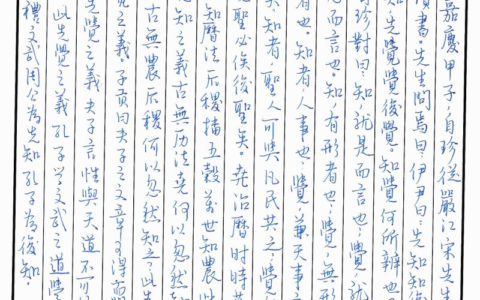 嘉慶甲子，自珍從嚴江宋先生
讀書，先生問焉曰：伊尹曰：先知知後
知，先覺覺後覺。知覺何所辨也？
自珍對曰：知，就是而言也；覺，就
而言也。知，有形者也；覺，無形
者也。知者，人事也；覺，兼天事
矣。知者，聖人可與凡民共之；覺
聖必俟後聖矣。堯治曆時時
知曆法；后稷播五穀，萬世知農；此
知之義。古無历法，堯何以忽然知
古無農，后稷何以忽然知之；此先
之義。子貢曰：夫子之文章可得而聞
覺之義，夫子言性與天道不可得
此先覺之義，孔子學文武之道，覺
禮，文武周公為先知，孔子為後知。